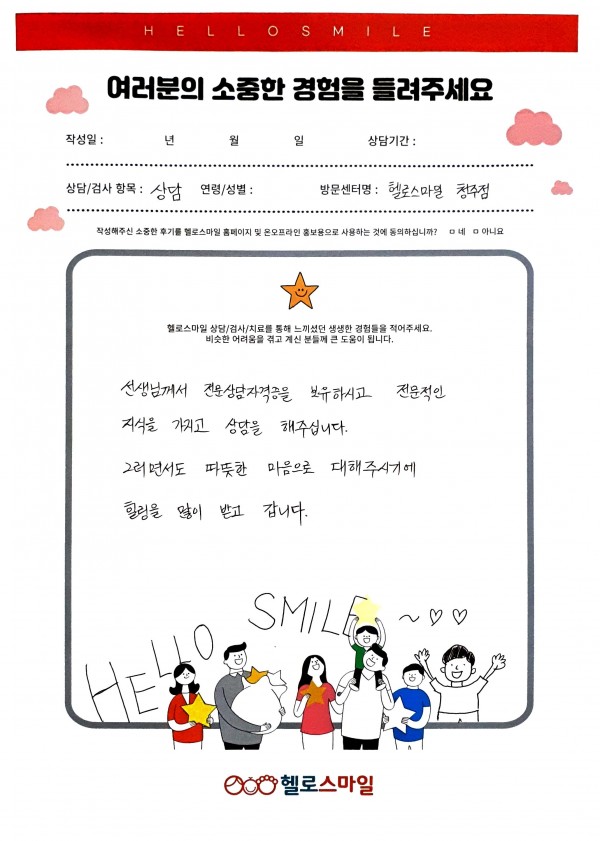 HELLOSMILE
여러분의 소중한 경험을 들려주세요
작성일 : 년 월 일 상담기간 :
상담/검사 항목 : 상담 연령/성별 : 방문센터명 : 헬로스마일 청주점
작성해주신 소중한 후기를 헬로스마일 홈페이지 및 온오프라인 홍보용으로 사용하는 것에 동의하십니까? ㅁ 네 ㅁ 아니요
헬로스마일 상담/검사/치료를 통해 느끼셨던 생생한 경험들을 적어주세요.
비슷한 어려움을 겪고 계신 분들께 큰 도움이 됩니다.
선생님께서 전문상담자격증을 보유하시고 전문적인
지식을 가지고 상담을 해주십니다.
그러면서도 따뜻한 마음으로 대해주시기에
힐링을 많이 받고 갑니다.
HELLO SMILE ~♡♡
헬로스마일